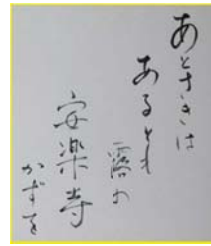 あとさきは
あるとも
露の
安楽寺
かずを